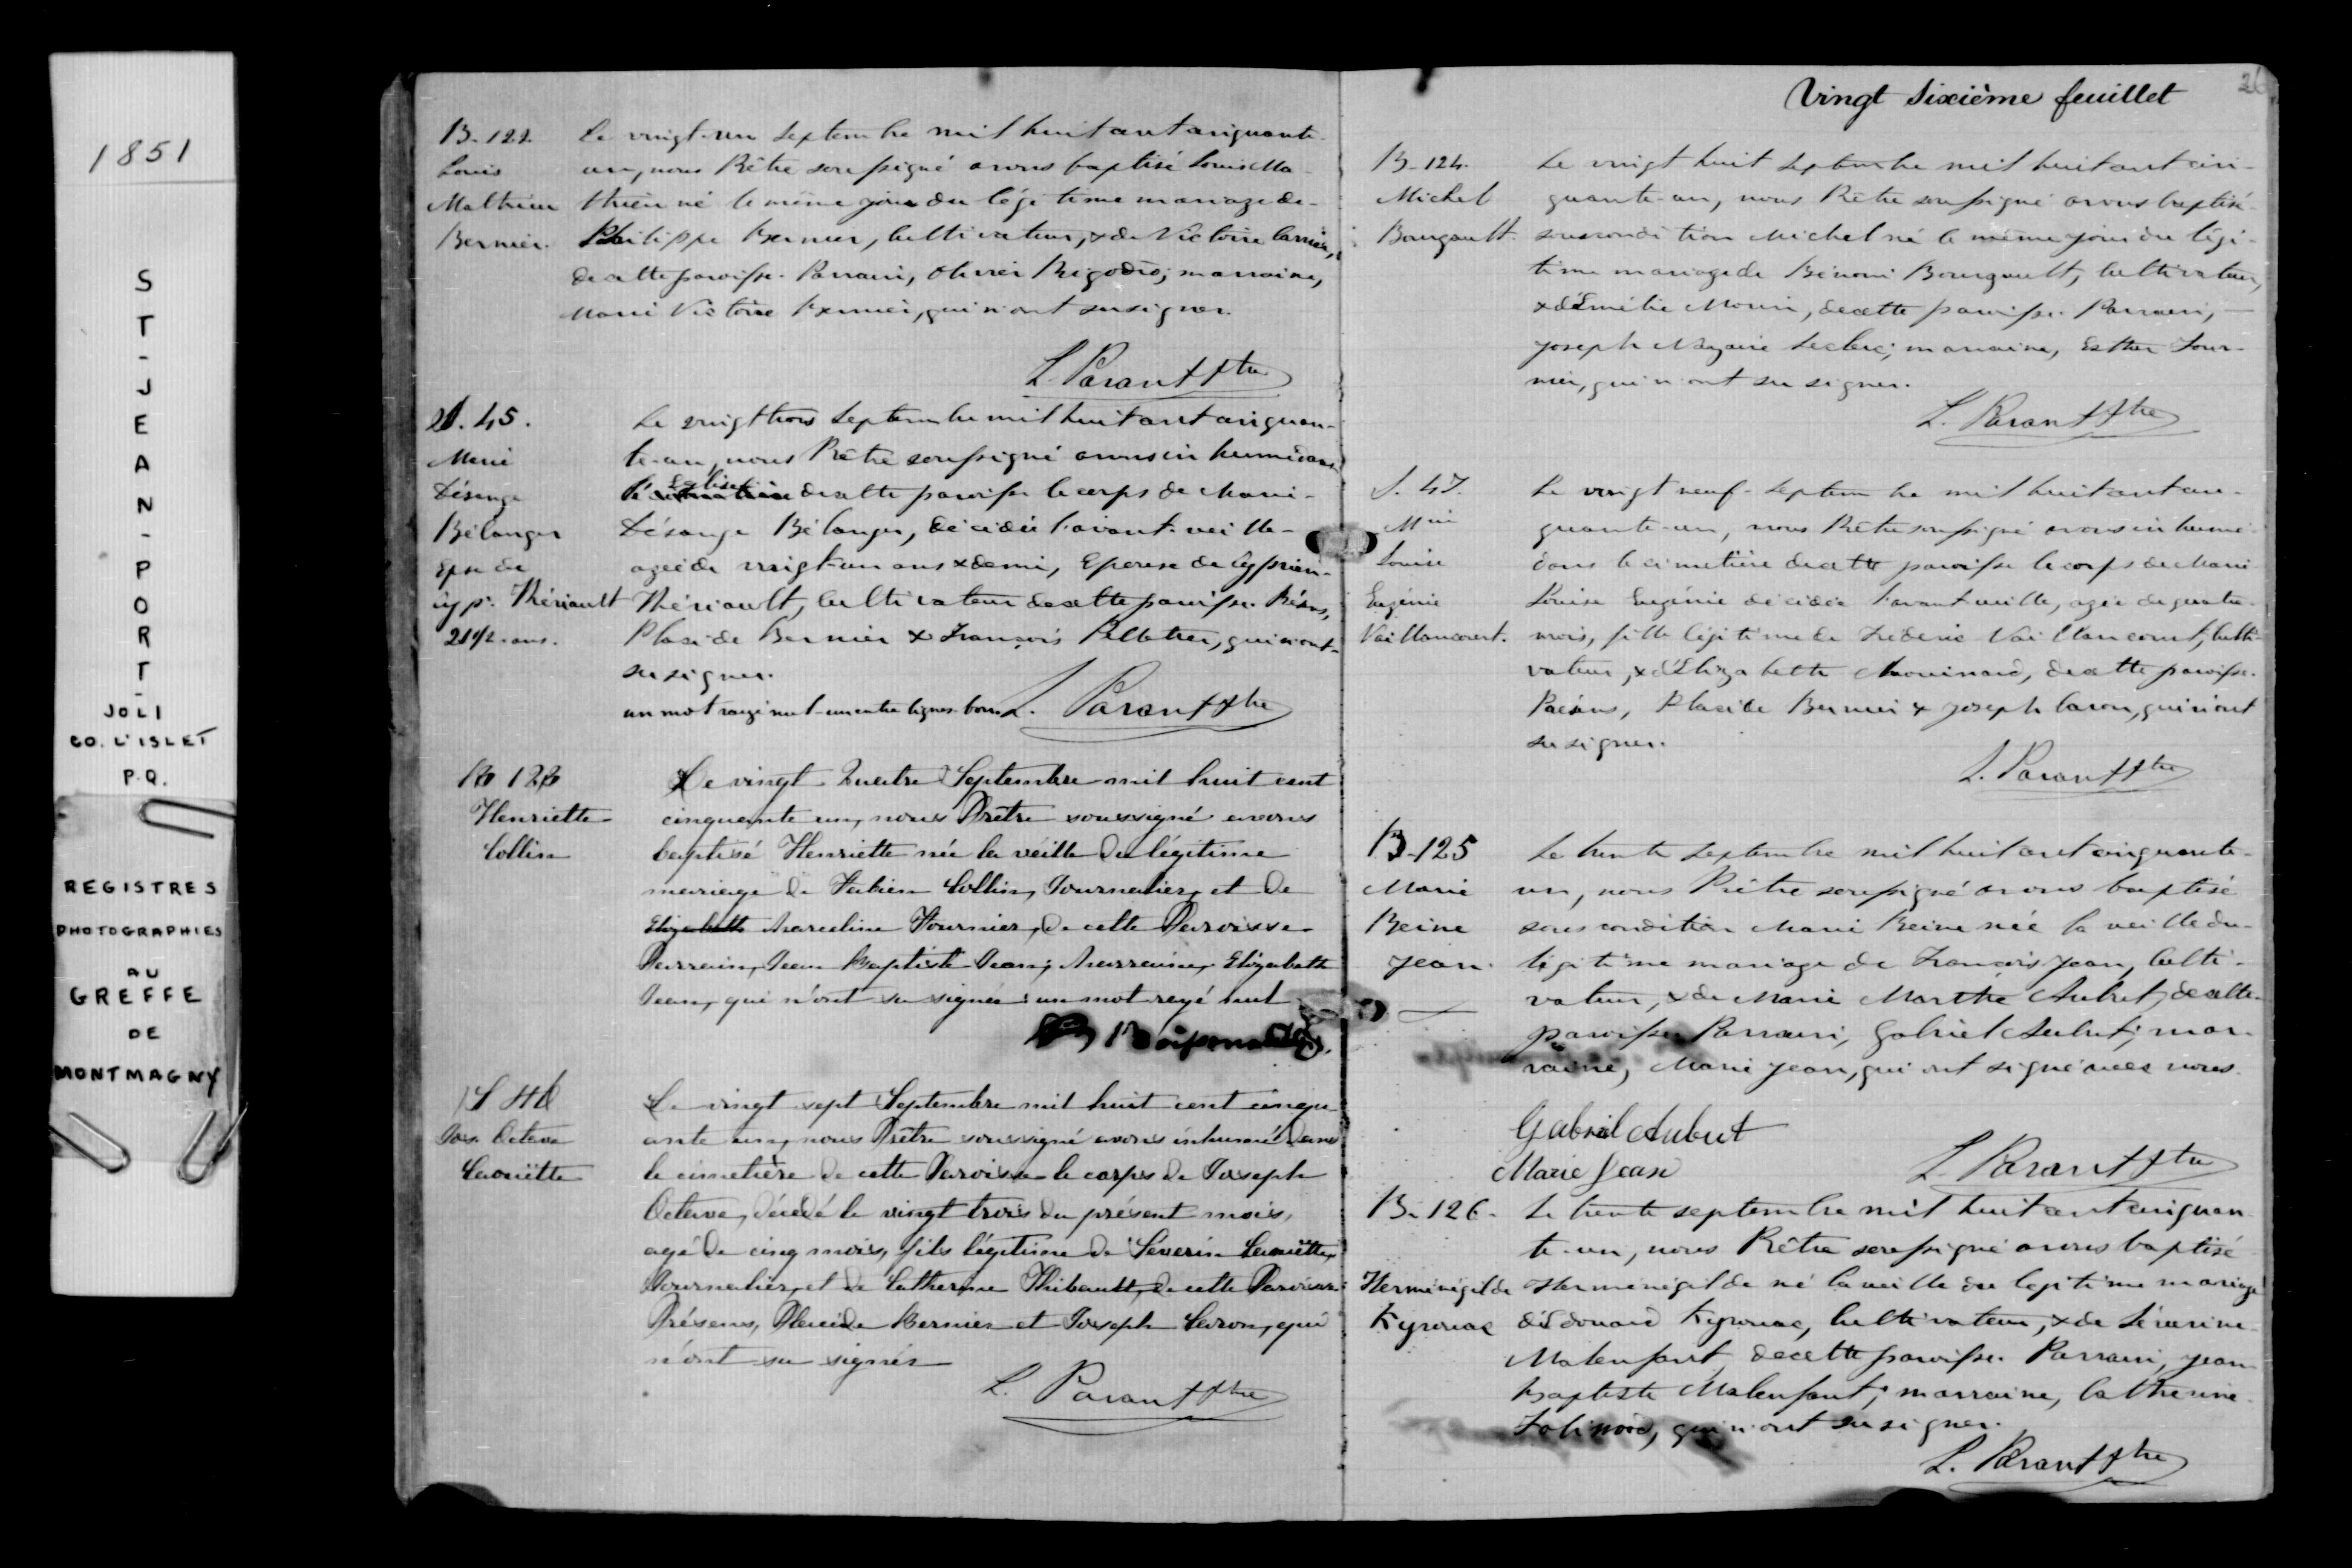 1851
ST-JEAN-PORT-
JOLI
CO. L'ISLET
P.Q.
REGISTRES
PHOTOGRAPHIES
AU
GREFFE
DE
MONTMAGNY
B-122.
Louis
Mathieu
Bernier.
Le vingt-un Septembre mil huit cent cinquante-
un, nous Prêtre soussigné avons baptisé Louis Ma-
thieu né le même jour du légitime mariage de
Philippe Bernier, cultivateur, & de Victoire Carrier,
de cette paroisse. Parrain, Olivier ; marraine,
Marie Victoire Bernier, qui n'ont su signer.
L. Parant Ptre
S. 45.
Marie
Désange
Bélanger
Epse de
Cypn. Thériault
21 1/2 ans.
Le vingt trois Septembre mil huit cent cinquan-
te-un, nous Prêtre soussigné avons inhumé dans
l'Eglise de cette paroisse le corps de Marie-
Désange Bélanger, décédée l'avant-veille
agée de vingt-un ans & demi, Epouse de Cyprien
Thériault, cultivateur de cette paroisse. Présens,
Placide Bernier & François Pelletier, qui n'ont
su signer.
un mot rayé nul - un entre lignes bon. L. Parant Ptre
B 123
Henriette
Collin
Le vingt Quatre Septembre mil huit cent
cinquante un, nous Prêtre soussigné avons
baptisé Henriette née la véille du légitime
mariage de Fabien Collin, Journalier, et de
Elizabette Marceline Fournier, de cette Paroisse
Parrain, Jean Baptiste Jean; Marraine, Elizabette
Jean, qui n'ont su signér: un mot rayé nul
S 46
Jos. Octave
Caouëtte
Le vingt sept Septembre mil huit cent cinqu
ante un, nous Prêtre soussigné avons inhumé dans
le cimetière de cette Paroisse le corps de Joseph
Octave, décedé le vingt trois du présent mois,
agé de cinq mois, fils légitime de Séverin Caouëtte,
Journalier, et de Catherine Thibault, de cette Paroisse
Présens, Placide Bernier et Joseph Caron, qui
n'ont su signér
L. Parant Ptre
Vingt Sixième feuillet
26
B-124.
Michel
Bourgault.
Le vingt huit Septembre mil huit cent cin-
quante-un, nous Prêtre soussigné avons baptisé
sous condition Michel né le même jour du légi-
time mariage de Bénoni Bourgault, cultivateur,
& d'Emélie Morin, de cette paroisse. Parrain,
Joseph Magloire Leclerc; marraine, Esther Four-
nier, qui n'ont su signer.
L. Parant Ptre
S. 47.
Mie
Louise
Eugénie
Vaillancourt.
Le vingt neuf Septembre mil huit cent cin-
quante-un, nous Prêtre soussigné avons inhumé
dans le cimetière de cette paroisse le corps de Marie
Louise Eugénie décédée l'avant veille, agée de quatre
mois, fille légitime de Fréderic Vaillancourt, culti-
vateur, & d'Elizabette Chouinard, de cette paroisse.
Présens, Placide Bernier & Joseph Caron, qui n'ont
su signer.
L. Parant Ptre
B-125
Marie
Reine
Jean.
Le trente Septembre mil huit cent cinquante-
un, nous Prêtre soussigné avons baptisé
sous condition Marie Reine née la veille du
légitime mariage de François Jean, culti-
vateur, & de Marie Marthe Aubut, de cette
paroisse Parrain, Gabriel Aubut; mar-
raine, Marie Jean, qui ont signé avec nous.
Gabriel Aubut
Marie Jean
L. Parant Ptre
B-126-
Herménégilde
Kyrouac
Le trente septembre mil huit cent cinquan-
te-un, nous Prêtre soussigné avons baptisé
Herménégilde né la veille du légitime mariage
d'Edouard Kyrouac, cultivateur, & de Séverine
Malenfant de cette paroisse. Parrain, Jean
Baptiste Malenfant; marraine, Catherine
qui n'ont su signer.
L. Parant Ptre